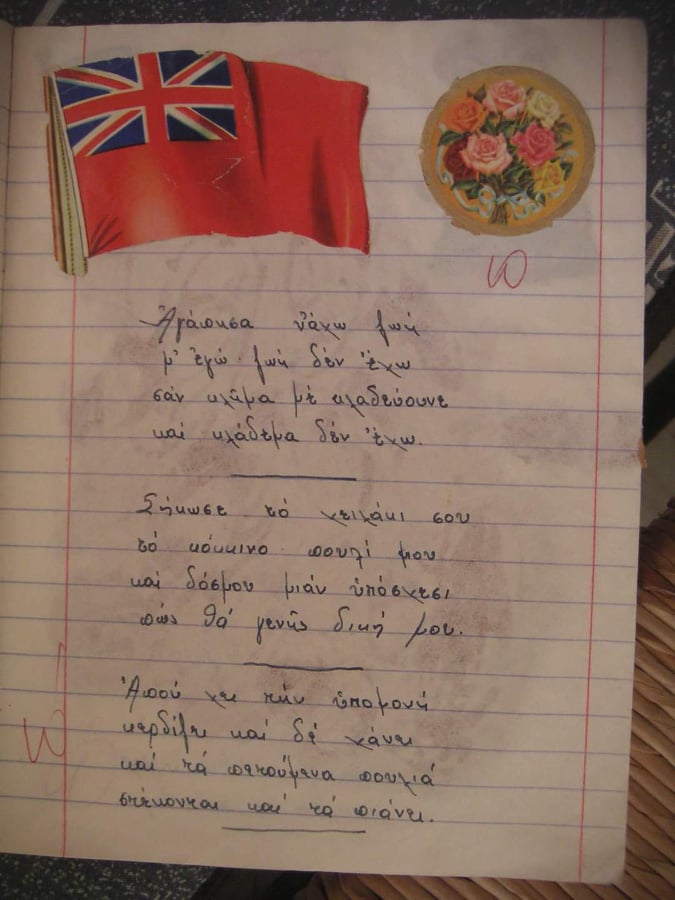 Ἀγάπησα νἄχω ζωή
μ' ἐγώ ζωή δέν ἔχω
σάν κλῆμα μέ κλαδεύουνε
καί κλάδεμα δέν ἔχω.
Σήκωσε τό χειλάκι σου
τό κόκκινο πουλί μου
καί δόσμου μιάν ὑπόσχεσι
πώς θά γενῆς δική μου.
Ἀπού χει τήν ὑπομονή
κερδίζει καί δέ χάνει
καί τά πετούμενα πουλιά
στέκουνται καί τά πιάνει.